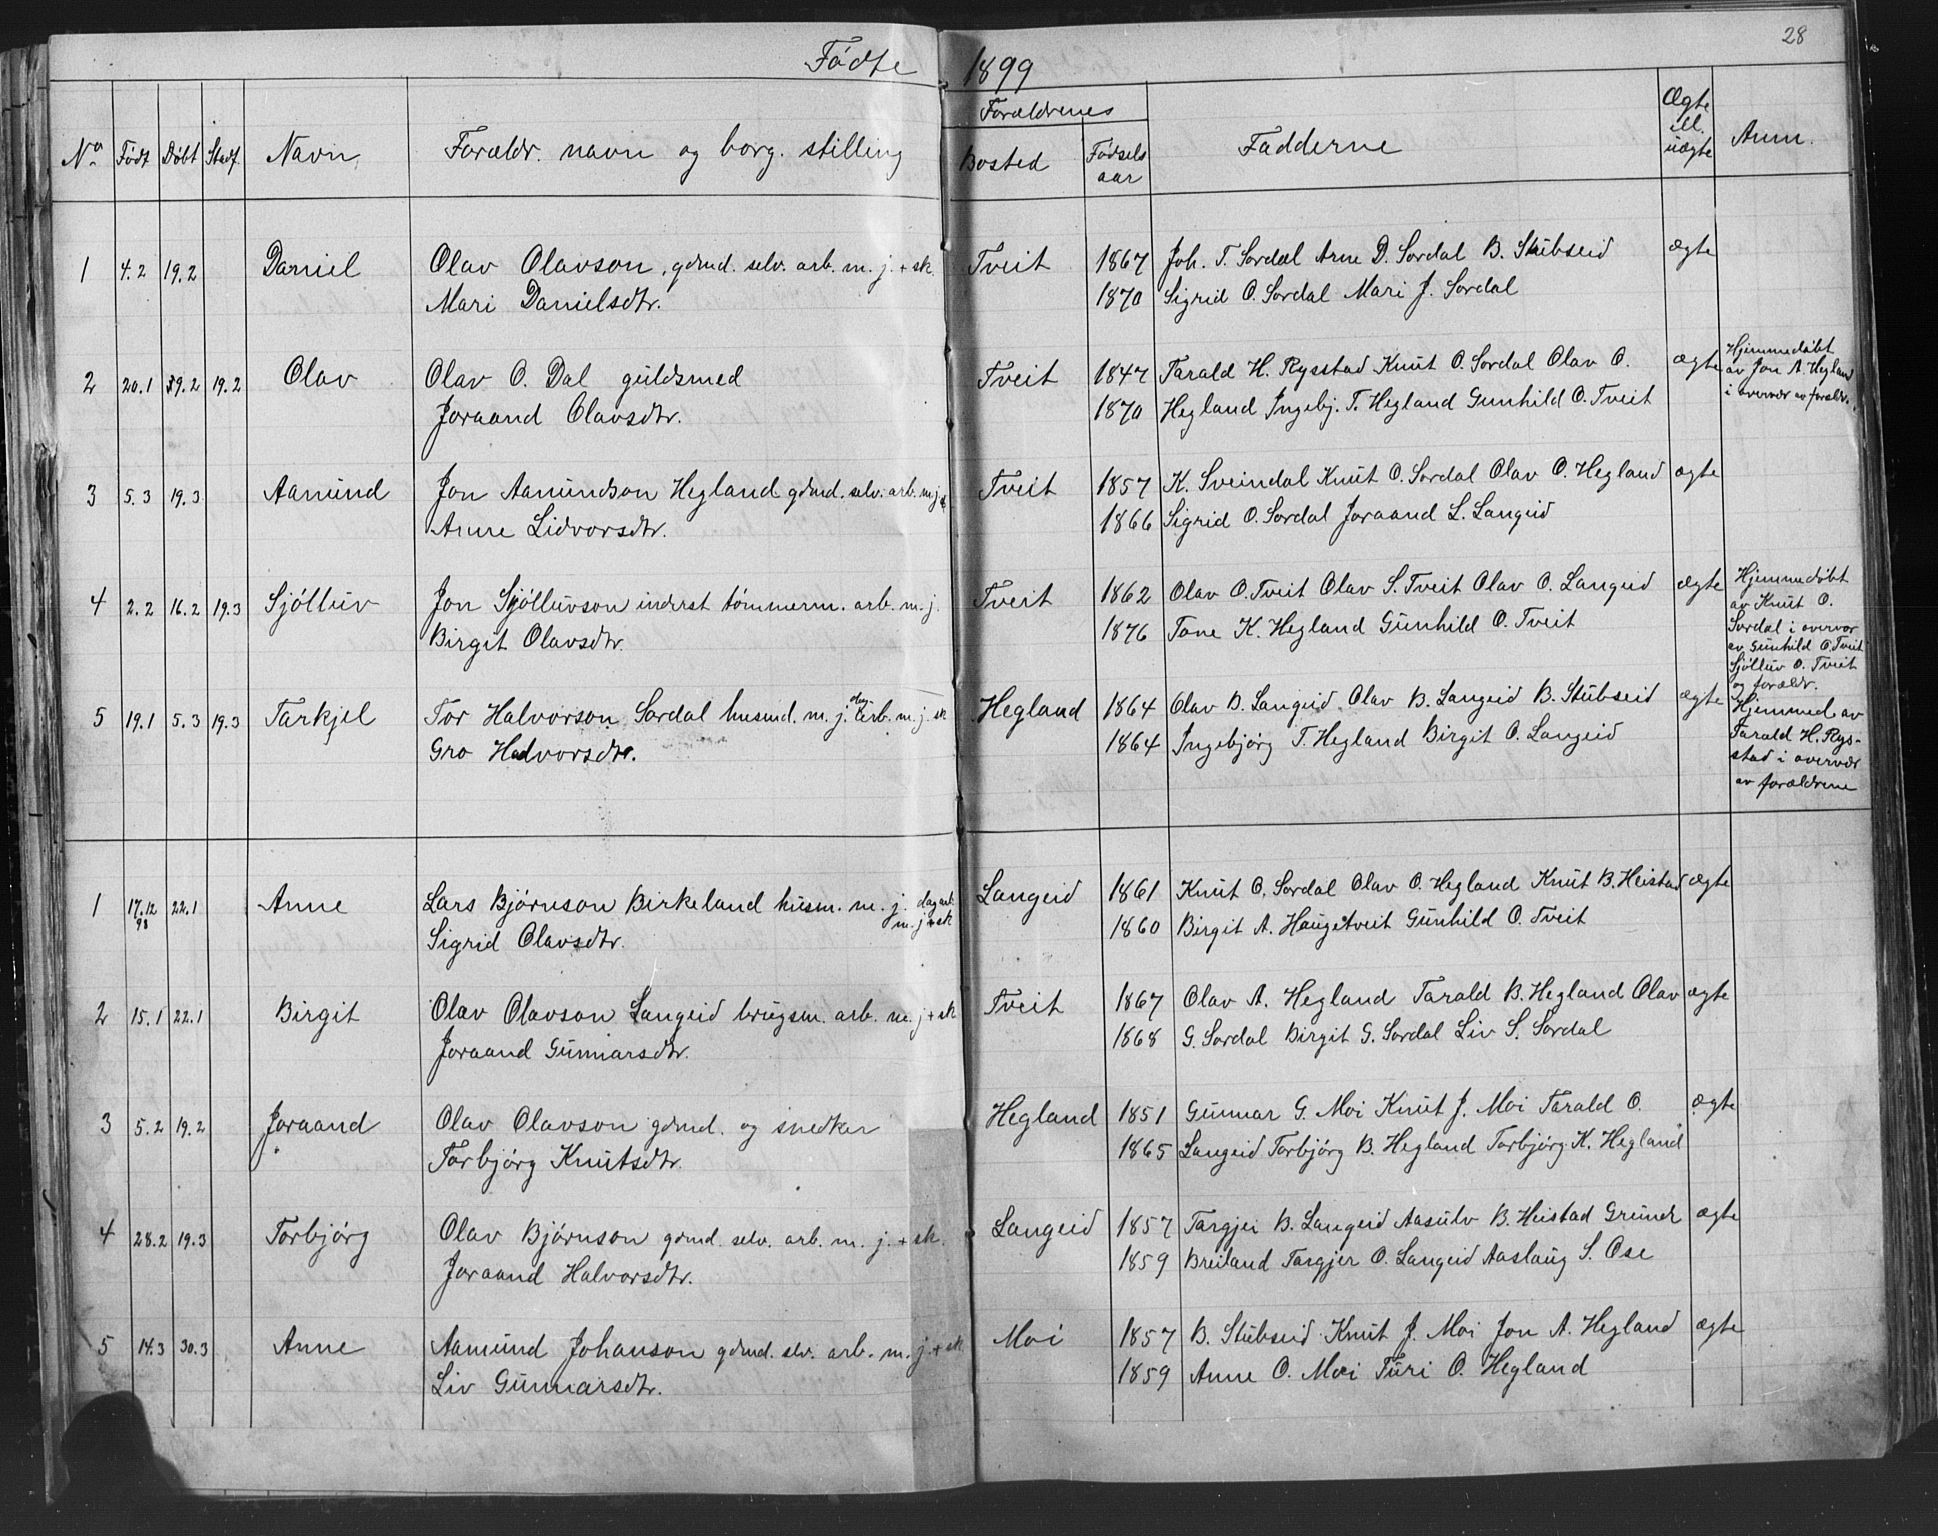 28
Fødte 1899
No Født Døbt Stadf. Navn Forældr. navn og borg. stilling Forældrenes Bosted Fødsels aar Fadderne Ægte ell. uægte Anm.
1 4.2 19.2 Daniel Olav Olavson, gdmd. selv. arb. m. j. + sk. Tveit 1867 Joh. T. Sordal Arne D. Sordal B. Stubseid ægte
Mari Danielsdtr. 1870 Sigrid O. Sordal Mari J. Sordal
2 20.1 19.2 19.2 Olav Olav O. Dal guldsmed Tveit 1847 Tarald H. Rysstad Knut O. Sordal Olav O. ægte
Joraand Olavsdtr. 1870 Hegland Ingebj. T. Hegland Gunhild O. Tveit
Hjemmedøbt
av Jon A. Hegland
i overvær av forældr.
3 5.3 19.3 Aamund Jon Aamundson Hegland gdmd. selv. arb. m. j. Tveit 1857 K. Sveindal Knut O. Sordal Olav O. Hegland ægte
Anne Lidvorsdtr. 1866 Sigrid O. Sordal Joraand L. Langeid
4 2.2 16.2 19.3 Sjølluv Jon Sjølluvson inderst tømmerm. arb. m. j. Tveit 1862 Olav O. Tveit Olav S. Tveit Olav O. Langeid ægte
Birgit Olavsdtr. 1876 Tone K. Hegland Gunhild O. Tveit
Hjemmedøbt
av Knut O.
Sordal i overvær
av Gunhild O. Tveit
Sjølluv O. Tveit
og forældr.
5 19.1 5.3 19.3 Tarkjel Tor Halvorson Sordal husmd. m. j. dag arb. m. j. sk Hegland 1864 Olav B. Langeid Olav B. Langeid B. Stubseid ægte
Gro Halvorsdtr. 1864 Ingebjørg T. Hegland Birgit O. Langeid
Hjemmed av
Tarald H. Rys-
stad i overvær
av forældrene
1 17.12 98 22.1 Anne Lars Bjørnson Birkeland husm. m. j. dagarb. m. j. + sk Langeid 1861 Knut O. Sordal Olav O. Hegland Knut B. Heistad ægte
Sigrid Olavsdtr. 1860 Birgit A. Haugetveit Gunhild O. Tveit
2 15.1 22.1 Birgit Olav Olavson Langeid brugsm. arb. m. j + sk Tveit 1867 Olav A. Hegland Tarald B. Hegland Olav ægte
Joraand Gunnarsdtr. 1868 G. Sordal Birgit G. Sordal Liv S. Sordal
3 5.2 19.2 Joraand Olav Olavson gdmd. og snedker Hegland 1851 Gunnar G. Moi Knut J. Moi Tarald O. ægte
Torbjørg Knutsdtr. 1865 Langeid Torbjørg B. Hegland Torbjørg K. Hegland
4 28.2 19.3 Torbjørg Olav Bjørnson gdmd. selv. arb. m. j. + sk. Langeid 1857 Targjei B. Langeid Aasulv B. Heistad ægte
Joraand Halvorsdtr. 1859 Breiland Targjer O. Langeid Aaslaug S. Ose
5 14.3 30.3 Anne Aamund Johanson gdmd. slv. arb. m. j. + sk. Moi 1857 B. Stubseid Knut J. Moi Jon A. Hegland ægte
Liv Gunnarsdtr. 1859 Anne O. Moi Turi O. Hegland